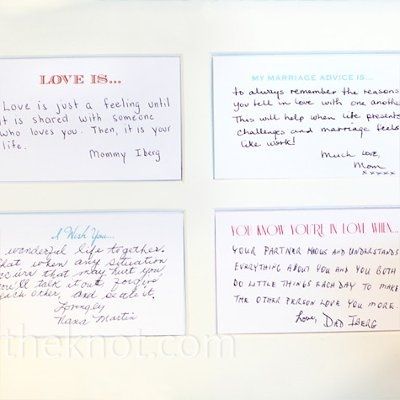 LOVE IS...
Love is just a feeling until
it is shared with someone
who loves you. Then, it is your
life.
Mommy Iberg
MY MARRIAGE ADVICE IS...
to always remember the reasons
you fell in love with one another
This will help when life presents
challenges and marriage feels
like work!
Much Love,
Mom
xxxxx
I Wish You...
wonderful life together.
that when any situation
occurs that may hurt you
you'll talk it out, forgive
each other, and settle it.
Lovingly
Nana Martin
YOU KNOW YOU'RE IN LOVE WHEN...
YOUR PARTNER KNOWS AND UNDERSTANDS
EVERYTHING ABOUT YOU AND YOU BOTH
DO LITTLE THINGS EACH DAY TO MAKE
THE OTHER PERSON LOVE YOU MORE.
Love, DAD IBERG
theknot.com